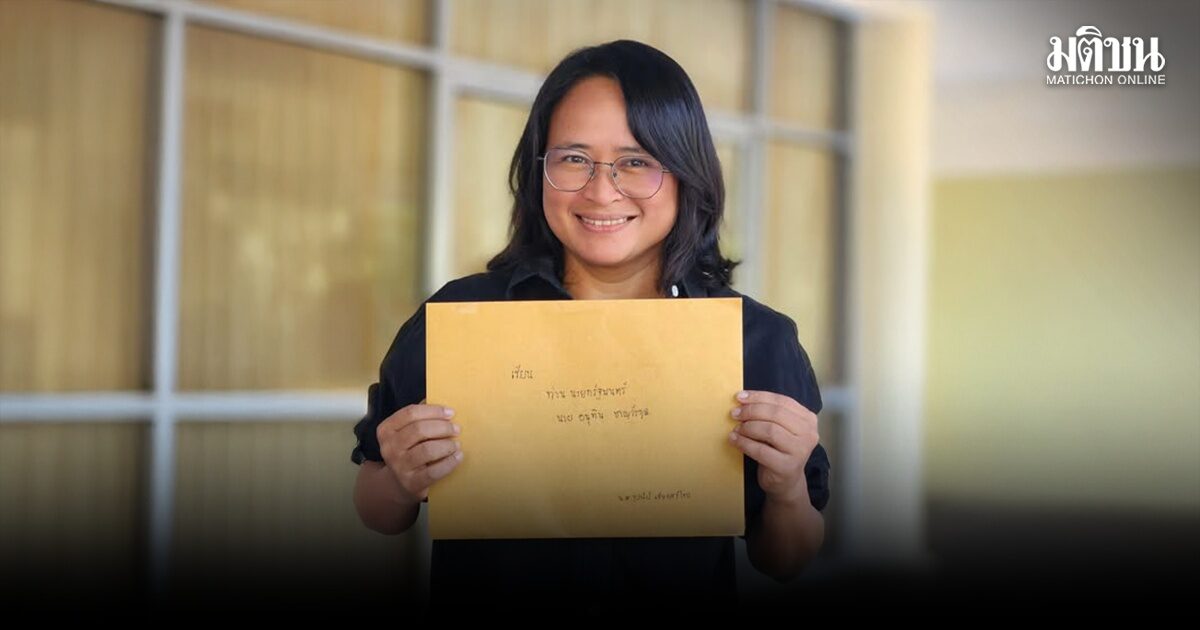 มติชน
MATICHON ONLINE
เรียน
ท่าน นายกรัฐมนตรี
นาย อนุทิน ชาญวีรกูล